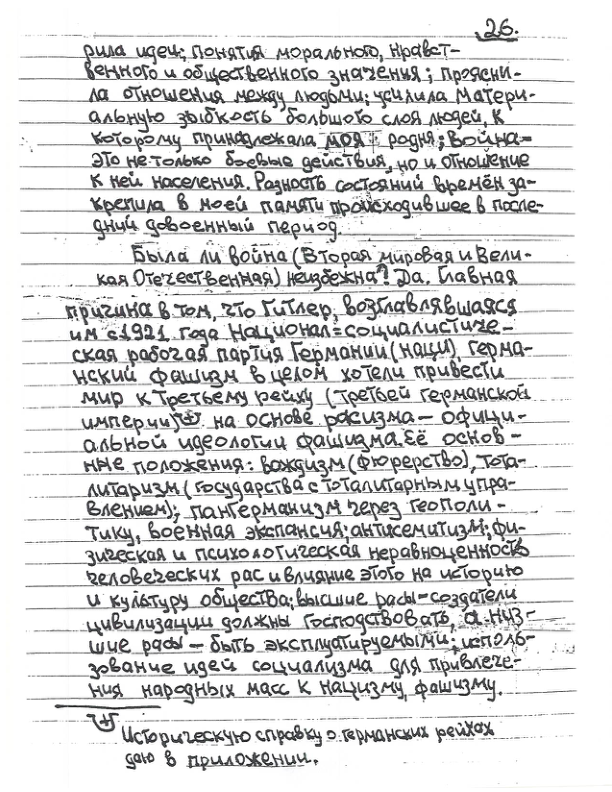 26.
рила идеи; понятия морального, нравст-
венного и общественного значения; проясни-
ла отношения между людьми; усилила матери-
альную зыбкость большого слоя людей, к
которому принадлежала моя родня; война-
это не только боевые действия, но и отношение
к ней населения. Разность состояний времён за-
крепила в моей памяти происходившее в после-
дний довоенный период.
Была ли война (Вторая мировая и Вели-
кая Отечественная) неизбежна? Да. Главная
причина в том, что Гитлер, возглавлявшаяся
им с 1921 года Национал=социалистиче-
ская рабочая партия Германии (наци), герма-
нский фашизм в целом хотели привести
мир к Третьему рейху (третьей германской
империи)+ на основе расизма – офици-
альной идеологии фашизма. Её основ-
ные положения: вождизм (фюрерство), тота-
литаризм (государства с тоталитарным упра-
влением); пангерманизм через геополи-
тику, военная экспансия; антисемитизм; фи-
зическая и психологическая неравноценность
человеческих рас и влияние этого на историю
и культуру общества; высшие расы-создатели
цивилизации должны господствовать, а низ-
шие расы – быть эксплуатируемыми; исполь-
зование идей социализма для привлече-
ния народных масс к нацизму, фашизму.
+ Историческую справку о германских рейхах
даю в приложении.